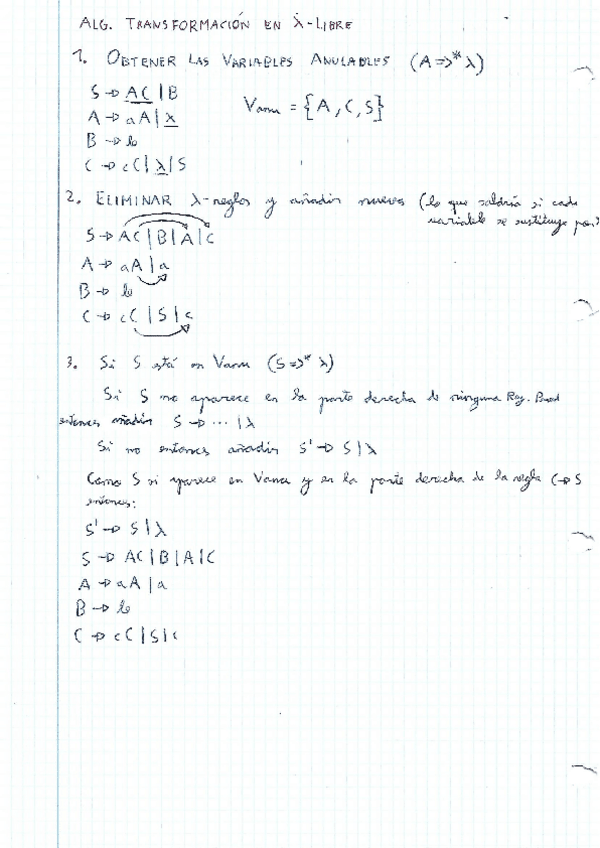 ALG. TRANSFORMACIÓN EN λ-LIBRE
1. OBTENER LAS VARIABLES ANULABLES (A =>* λ)
S → AC | B
A → aA | λ
Vanu = {A, C, S}
B → b
C → cC | λ | S
2. ELIMINAR λ-reglas y añadir nuevas (lo que saldría si cada
variable se sustituye por
S → AC | B | A | C
A → aA | a
B → b
C → cC | S | c
3. Si S está en Vanu (S =>* λ)
Si S no aparece en la parte derecha de ninguna Reg. Prod
entonces añadir S → ... | λ
Si no entonces añadir S' → S | λ
Como S si aparece en Vanu y en la parte derecha de la regla C → S
entonces:
S' → S | λ
S → AC | B | A | C
A → aA | a
B → b
C → cC | S | c